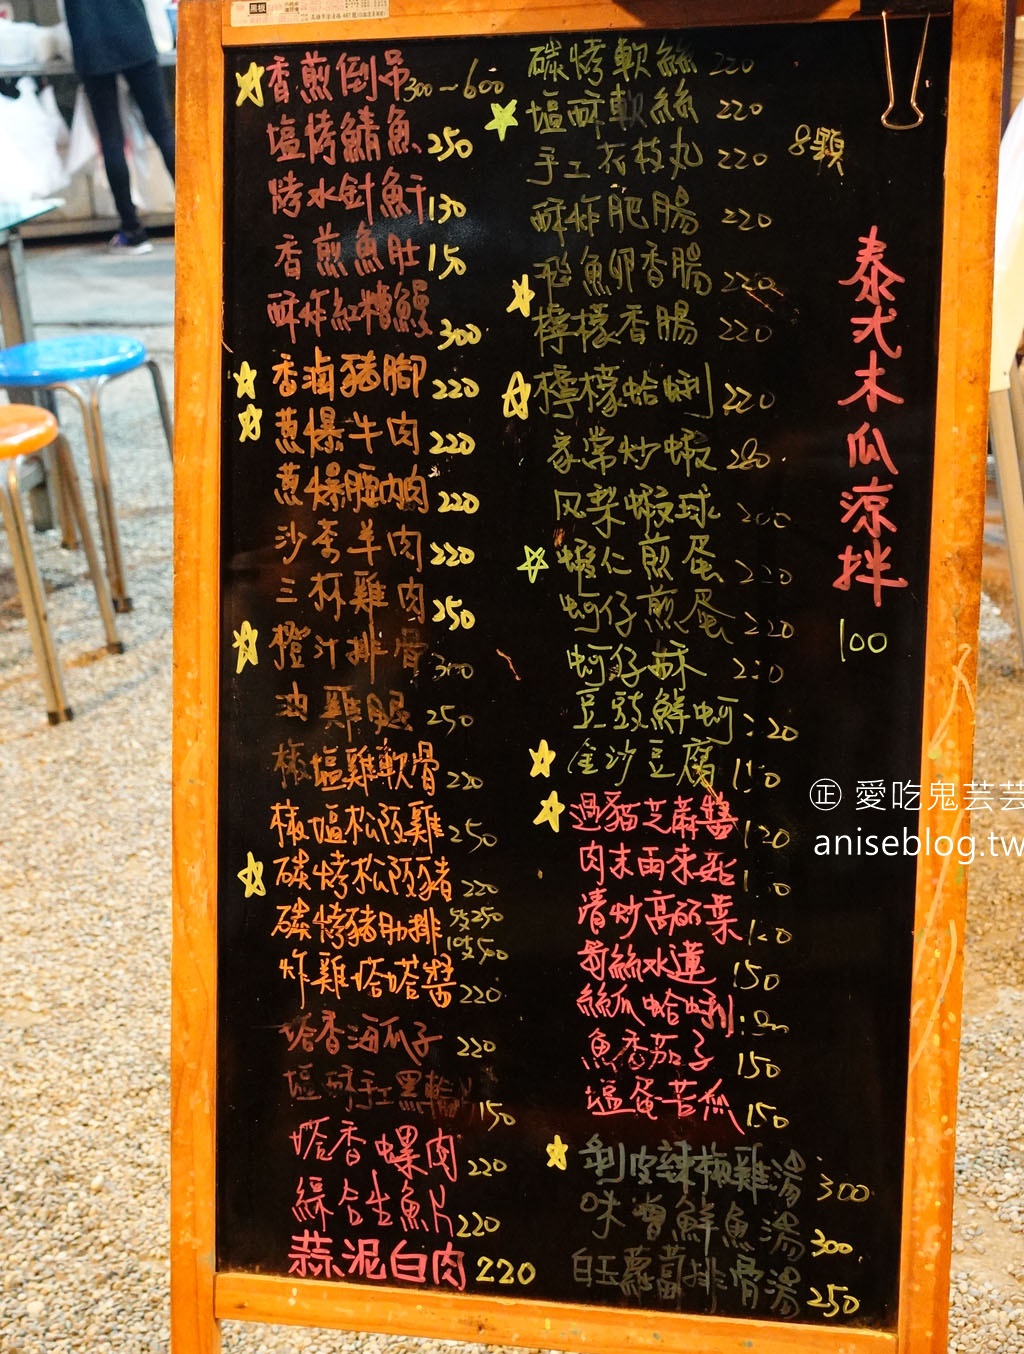 香煎倒吊 300~600
塩烤鯖魚 250
烤水針魚干 130
香煎魚肚 150
酥炸紅糟鰻 300
香滷豬腳 220
蔥爆牛肉 220
蔥爆腰內肉 220
沙茶羊肉 220
三杯雞肉 250
橙汁排骨 300
油雞腿 250
椒塩雞軟骨 220
椒塩松阪雞 250
碳烤松阪豬 220
碳烤豬肋排 5支250 10支500
炸雞塔塔醬 220
塔香海瓜子 220
塩酥手工黑輪片 150
塔香螺肉 220
綜合生魚片 220
蒜泥白肉 220
碳烤軟絲 220
塩酥軟絲 220
手工花枝丸 220 8顆
酥炸肥腸 220
飛魚卵香腸 220
檸檬香腸 220
檸檬蛤蜊 220
家常炒蝦 280
凤梨蝦球 200
蝦仁煎蛋 220
蚵仔煎蛋 220
蚵仔酥 220
豆豉鮮蚵 220
金沙豆腐 150
過貓芝蔴醬 120
肉末雨來菇
清炒高麗菜
薑絲水蓮 150
絲瓜蛤蜊
魚香茄子 150
塩蛋苦瓜 150
剝皮辣椒雞湯 300
味噌鮮魚湯 300
白玉蘿蔔排骨湯 250
泰式木瓜涼拌 100
正 愛吃鬼芸芸
aniseblog.tw